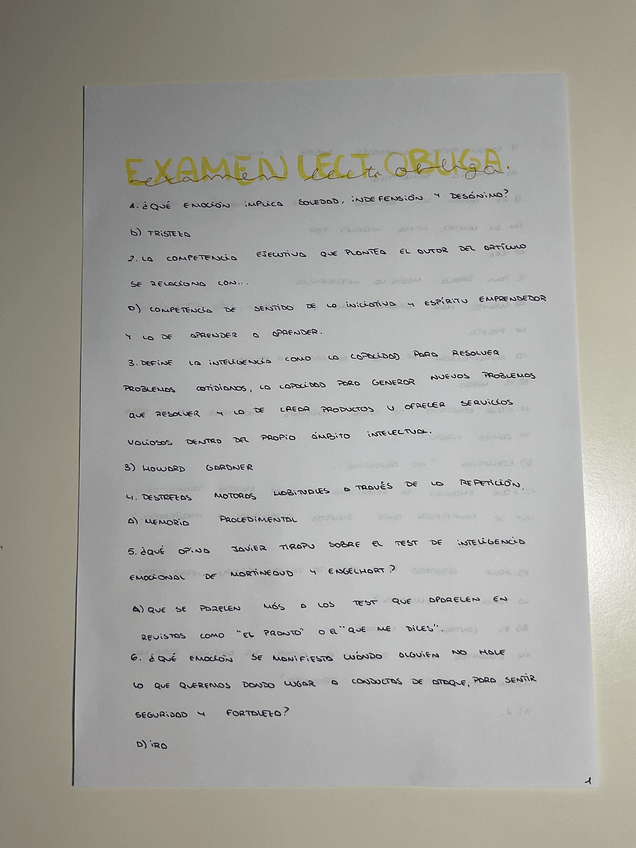 EXAMEN LECT OBLIGA.
examen lect obliga.
1. ¿QUÉ EMOCIÓN IMPLICA SOLEDAD, INDEFENSIÓN Y DESÁNIMO?
b) TRISTEZA
2. LA COMPETENCIA EJECUTIVA QUE PLANTEA EL AUTOR DEL ARTÍCULO
SE RELACIONA CON...
D) COMPETENCIA DE SENTIDO DE LA INICIATIVA Y ESPÍRITU EMPRENDEDOR
Y LA DE APRENDER A APRENDER.
3. DEFINE LA INTELIGENCIA COMO LA CAPACIDAD PARA RESOLVER
PROBLEMAS COTIDIANOS, LA CAPACIDAD PARA GENERAR NUEVOS PROBLEMAS
QUE RESOLVER Y LA DE CREAR PRODUCTOS U OFRECER SERVICIOS
VALIOSOS DENTRO DEL PROPIO ÁMBITO INTELECTUAL.
3) HOWARD GARDNER
4. DESTREZAS MOTORAS HABITUALES A TRAVÉS DE LA REPETICIÓN.
A) MEMORIA PROCEDIMENTAL
5. ¿QUÉ OPINA JAVIER TIRAPU SOBRE EL TEST DE INTELIGENCIA
EMOCIONAL DE MARTINEAUD Y ENGELHART?
A) QUE SE PARECEN MÁS A LOS TEST QUE APARECEN EN
REVISTAS COMO "EL PRONTO" O EL "QUE ME DICES".
6. ¿QUÉ EMOCIÓN SE MANIFIESTA CUÁNDO ALGUIEN NO HACE
LO QUE QUEREMOS DANDO LUGAR A CONDUCTAS DE ATAQUE, PARA SENTIR
SEGURIDAD Y FORTALEZA?
D) IRA
1